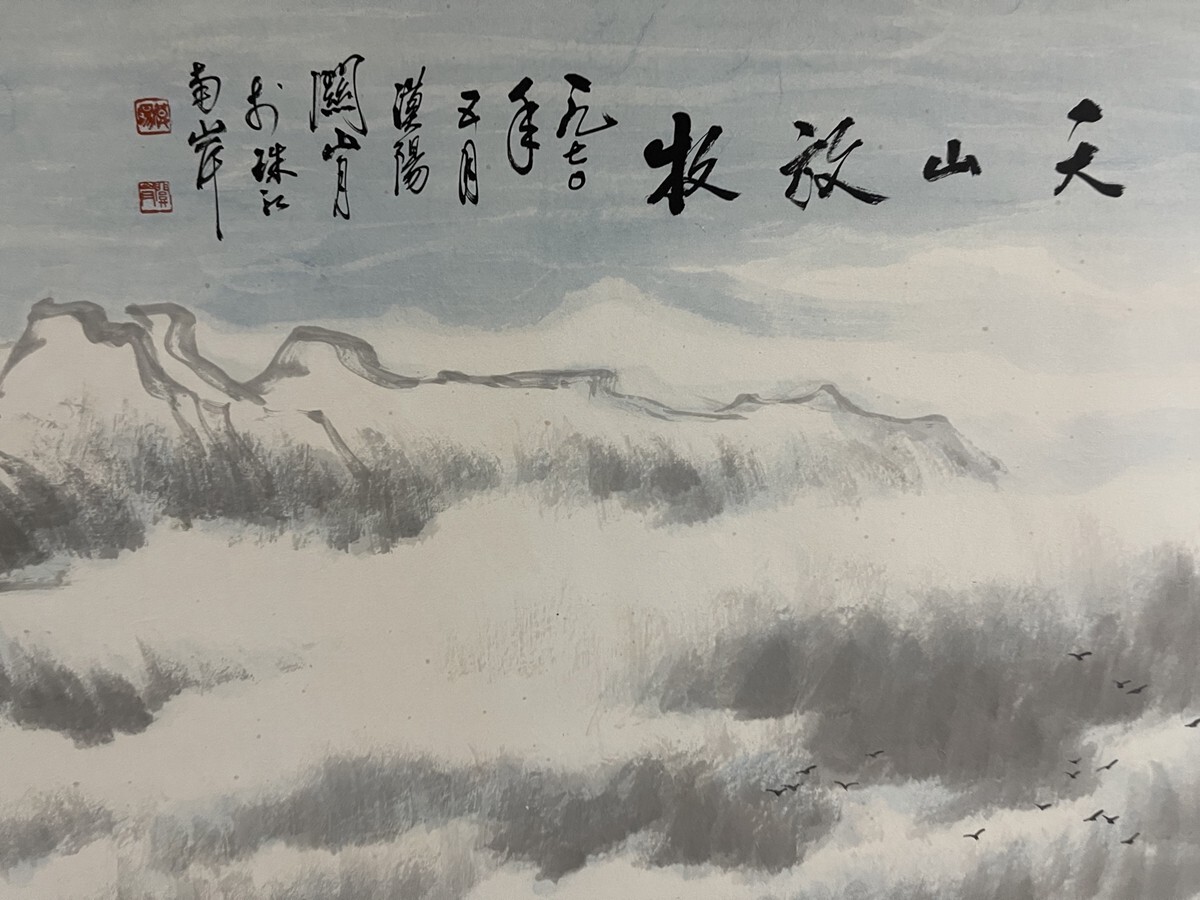 天山放牧
一九七〇
年
五月
漠陽
關山月
於珠江
南岸